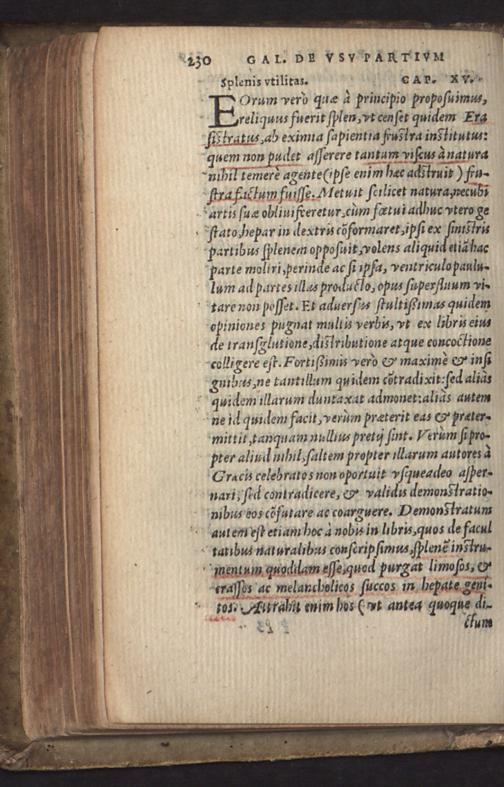 230 GAL. DE VSV PARTIVM
Splenis vtilitas. CAP. XV.
EOrum verò quæ à principio proposuimus,
reliquus fuerit splen, vt censet quidem Era
sistratus, ab eximia sapientia frustra institutus:
quem non pudet asserere tantum viscus à natura
nihil temere agente (ipse enim hac adstruit) fru-
stra factum fuisse. Metuit scilicet natura, necubi
artis suæ obliuisceretur, cùm fœtui adhuc vtero ge
stato, hepar in dextris cõformaret, ipsi ex sinistris
partibus splenem opposuit, volens aliquid etiã hac
parte moliri, perinde ac si ipsa, ventriculo paulu-
lum ad partes illas producto, opus superfluum vi-
tare non posset. Et aduersus stultißimas quidem
opiniones pugnat multis verbis, vt ex libris eius
de transglutione, distributione atque concoctione
colligere est. Fortißimis verò & maximè & insi
gnibus, ne tantillum quidem cõtradixit: sed aliàs
quidem illarum duntaxat admonet: aliàs autem
ne id quidem facit, verùm præterit eas & præter-
mittit, tanquam nullius pretij sint. Verùm si pro-
pter aliud nihil, saltem propter illarum autores à
Græcis celebratos non oportuit vsqueadeo asper-
nari, sed contradicere, & validis demonstratio-
nibus eos cõfutare ac coarguere. Demonstratum
autem est etiam hoc à nobis in libris, quos de facul
tatibus naturalibus conscripsimus, splenẽ instru-
mentum quoddam esse, quod purgat limosos, &
crassos ac melancholicos succos in hepate geni-
tos. Attrahit enim hos (vt antea quoque di-
ctum